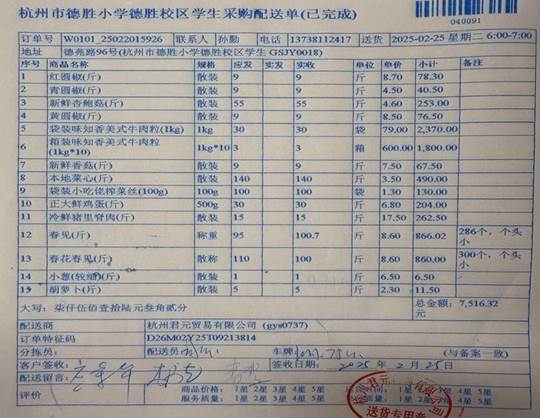 杭州市德胜小学德胜校区学生采购配送单(已完成)
040091
订单号 W0101_25022015926 联系人 孙勤 电话 13738112417 送货 2025-02-25 星期二 6:00-7:00
地址 德苑路96号(杭州市德胜小学德胜校区学生 GSJY0018)
序号 商品名称 规格 应发 实发 实收 单位 单价 小计 备注
1 红圆椒(斤) 散装 9 9 斤 8.70 78.30
2 青圆椒(斤) 散装 9 9 斤 4.50 40.50
3 新鲜杏鲍菇(斤) 散装 55 55 斤 4.60 253.00
4 黄圆椒(斤) 散装 9 9 斤 8.50 76.50
5 袋装味知香美式牛肉粒(1kg) 1kg 30 30 袋 79.00 2,370.00
6 箱装味知香美式牛肉粒(1kg*10) 1kg*10 3 3 箱 600.00 1,800.00
7 新鲜香菇(斤) 散装 9 9 斤 7.50 67.50
8 本地菜心(斤) 散装 140 140 斤 3.50 490.00
9 袋装小吃佬榨菜丝(100g) 100g 100 100 袋 1.30 130.00
10 正大鲜鸡蛋(斤) 500g 30 30 斤 6.80 204.00
11 冷鲜猪里脊肉(斤) 散装 15 15 斤 17.50 262.50
12 春见(斤) 称重 95 100.7 斤 8.60 866.02 286个，个头小
13 春花春见(斤) 散称 110 100 斤 8.60 860.00 300个，个头小
14 小葱(较细)(斤) 散装 1 1 斤 6.50 6.50
15 胡萝卜(斤) 散装 5 5 斤 2.30 11.50
大写：柒仟伍佰壹拾陆元叁角贰分 总金额：7,516.32元
配送商 杭州君元贸易有限公司 (gys0737)
订单特征码 D26M02Y25T09213814
分拣员： 配送员： 车牌： (与备案一致)
客户签收： 签收日期： 2025年2月25日
配送留言：
评价 商品价格： 1星 2星 3星 4星 5星
服务质量： 1星 2星 3星 4星 5星
送货专用章